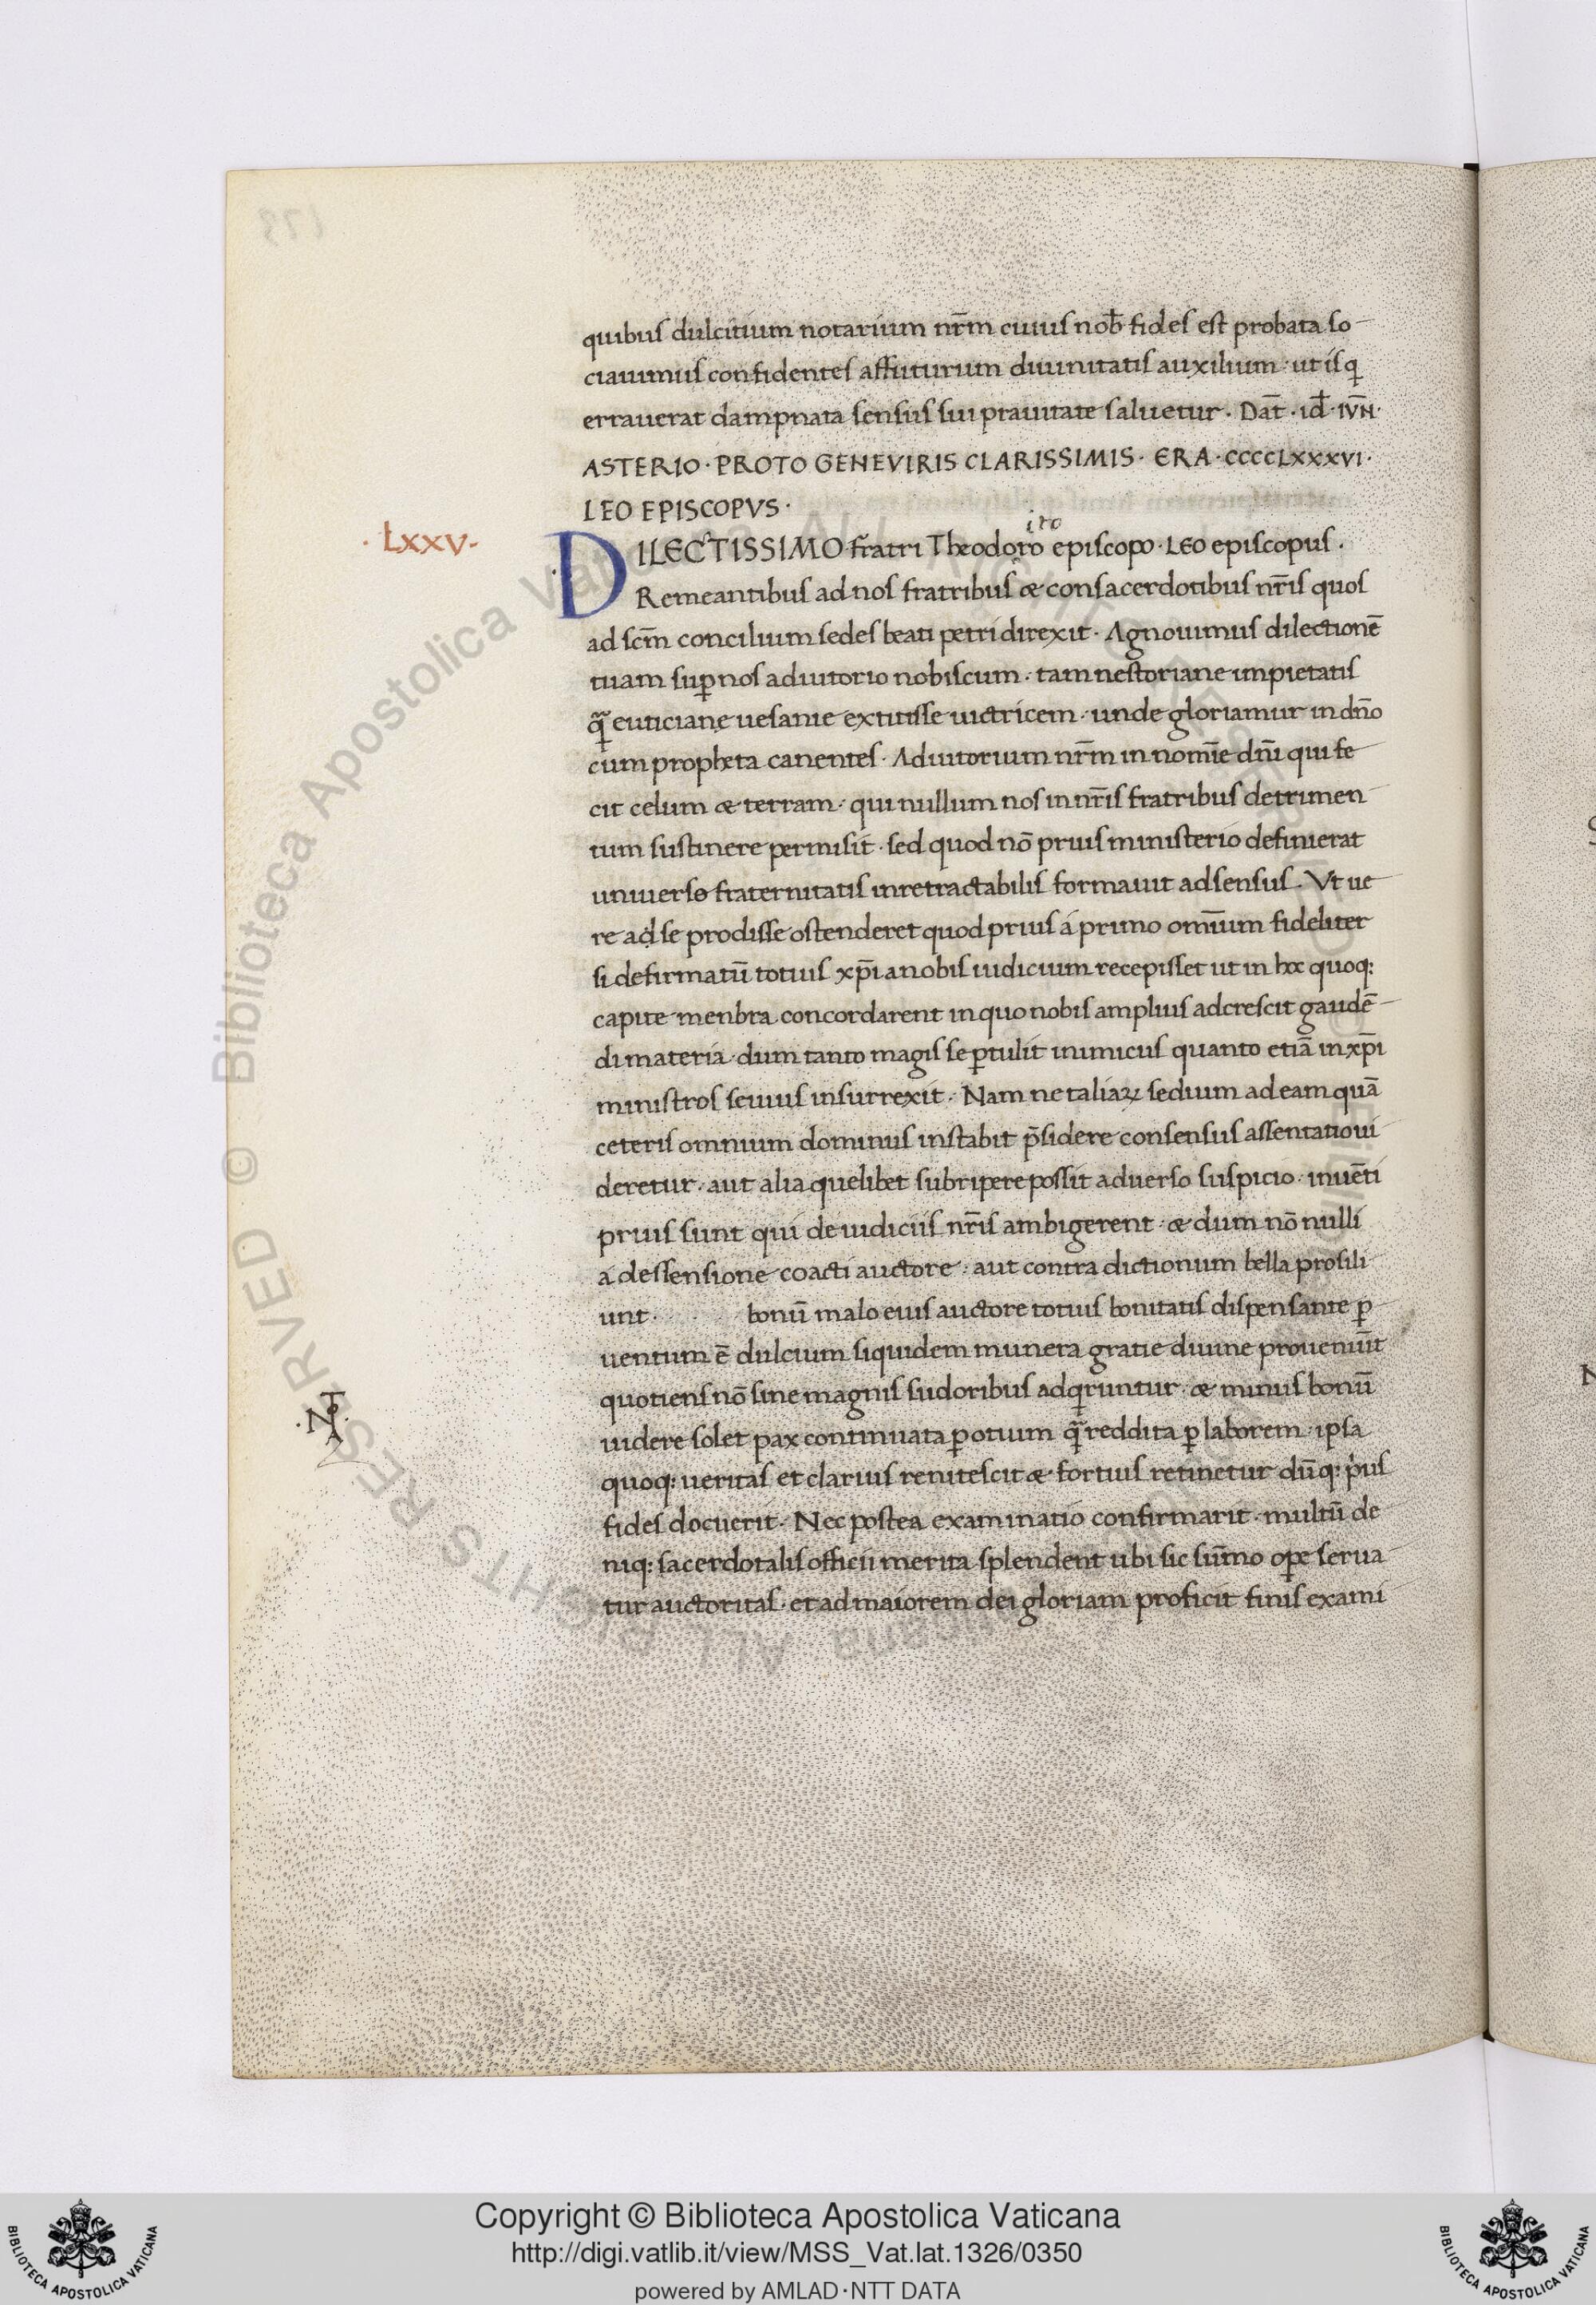 quibus dulcitium notarium nr̄m cuius nob̄ fides est probata so
ciauimus confidentes affuturum diuinitatis auxilium · ut is q
errauerat dampnata sensus sui prauitate saluetur · Dāt · id̄ · IVN̄ ·
ASTERIO · PROTO GENEVIRIS CLARISSIMIS · ERA · CCCCLXXXVI ·
LEO EPISCOPVS ·
· LXXV ·
iro
DILECTISSIMO fr̄atri Theodoro episcopo · LEO episcopus ·
Remeantibus ad nos fratribus & consacerdotibus nr̄is quos
ad scm̄ concilium sedes beati petri direxit · Agnouimus dilectionē
tuam sup̱ nos adiutorio nobiscum · tam nestoriane impietatis
q̄ȝ euticiane uesanie extitisse uictricem · unde gloriamur in dn̄o
cum propheta canentes · Adiutorium nr̄m in nomīe dn̄i qui fe
cit celum & terram · qui nullum nos in nr̄is fratribus detrimen
tum sustinere permisit · sed quod nō prius ministerio definierat
uniuerso fraternitatis inretractabilis formauit adsensus · Vt ue
re ad se prodisse ostenderet quod prius á primo omīum fideliter
si defirmatū totius xp̄i a nobis iudicium recepisset ut in hoc quoq:
capite menbra concordarent in quo nobis amplius adcrescit gaudē
di materia · dum tanto magis se ꝑtulit inimicus quanto etiā in xp̄i
ministros seuius insurrexit · Nam ne taliaꝝ sedium ad eam quā
ceteris omnium dominus instabit p̄sidere consensus assentatio ui
deretur · aut alia quelibet subripere possit aduerso suspicio · inuēti
prius sunt qui de iudiciis nr̄is ambigerent · & dum nō nulli
á dessensione coacti auctore · aut contra dictionum bella prosili
unt · bonū malo eius auctore totius bonitatis dispensante ꝑ
uentum ē dulcium siquidem munera gratie diuine proueniūt
quotiens nō sine magnis sudoribus adqruntur · & minus bonū
· NT ·
uidere solet pax continuata ꝑ otium q̄ȝ reddita ꝑ laborem · ipsa
quoq: ueritas et clarius renitescit & fortius retinetur dūq: p'us
fides docuerit · Nec postea examinatio confirmarit · multū de
niq: sacerdotalis officii merita splendent ubi sic sūmo oꝑe serua
tur auctoritas · et ad maiorem dei gloriam proficit finis exami
Copyright © Biblioteca Apostolica Vaticana
http://digi.vatlib.it/view/MSS_Vat.lat.1326/0350
powered by AMLAD·NTT DATA
BIBLIOTECA APOSTOLICA VATICANA
BIBLIOTECA APOSTOLICA VATICANA